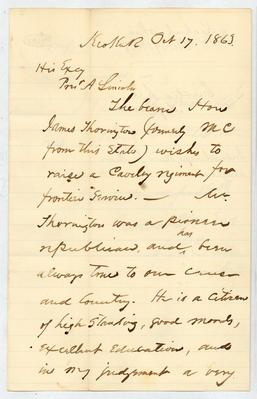 Keokuk Oct 17, 1863.
His Excy
Prest A Lincoln
The bearer Hon
James Thorington (formerly M C
from this State) wishes to
raise a Cavalry regiment for
frontier Service. — Mr.
Thorington was a pioneer
republican, and has been
always true to our cause
and Country. He is a Citizen
of high Standing, good morals,
excellent Education, and
in my judgement a very